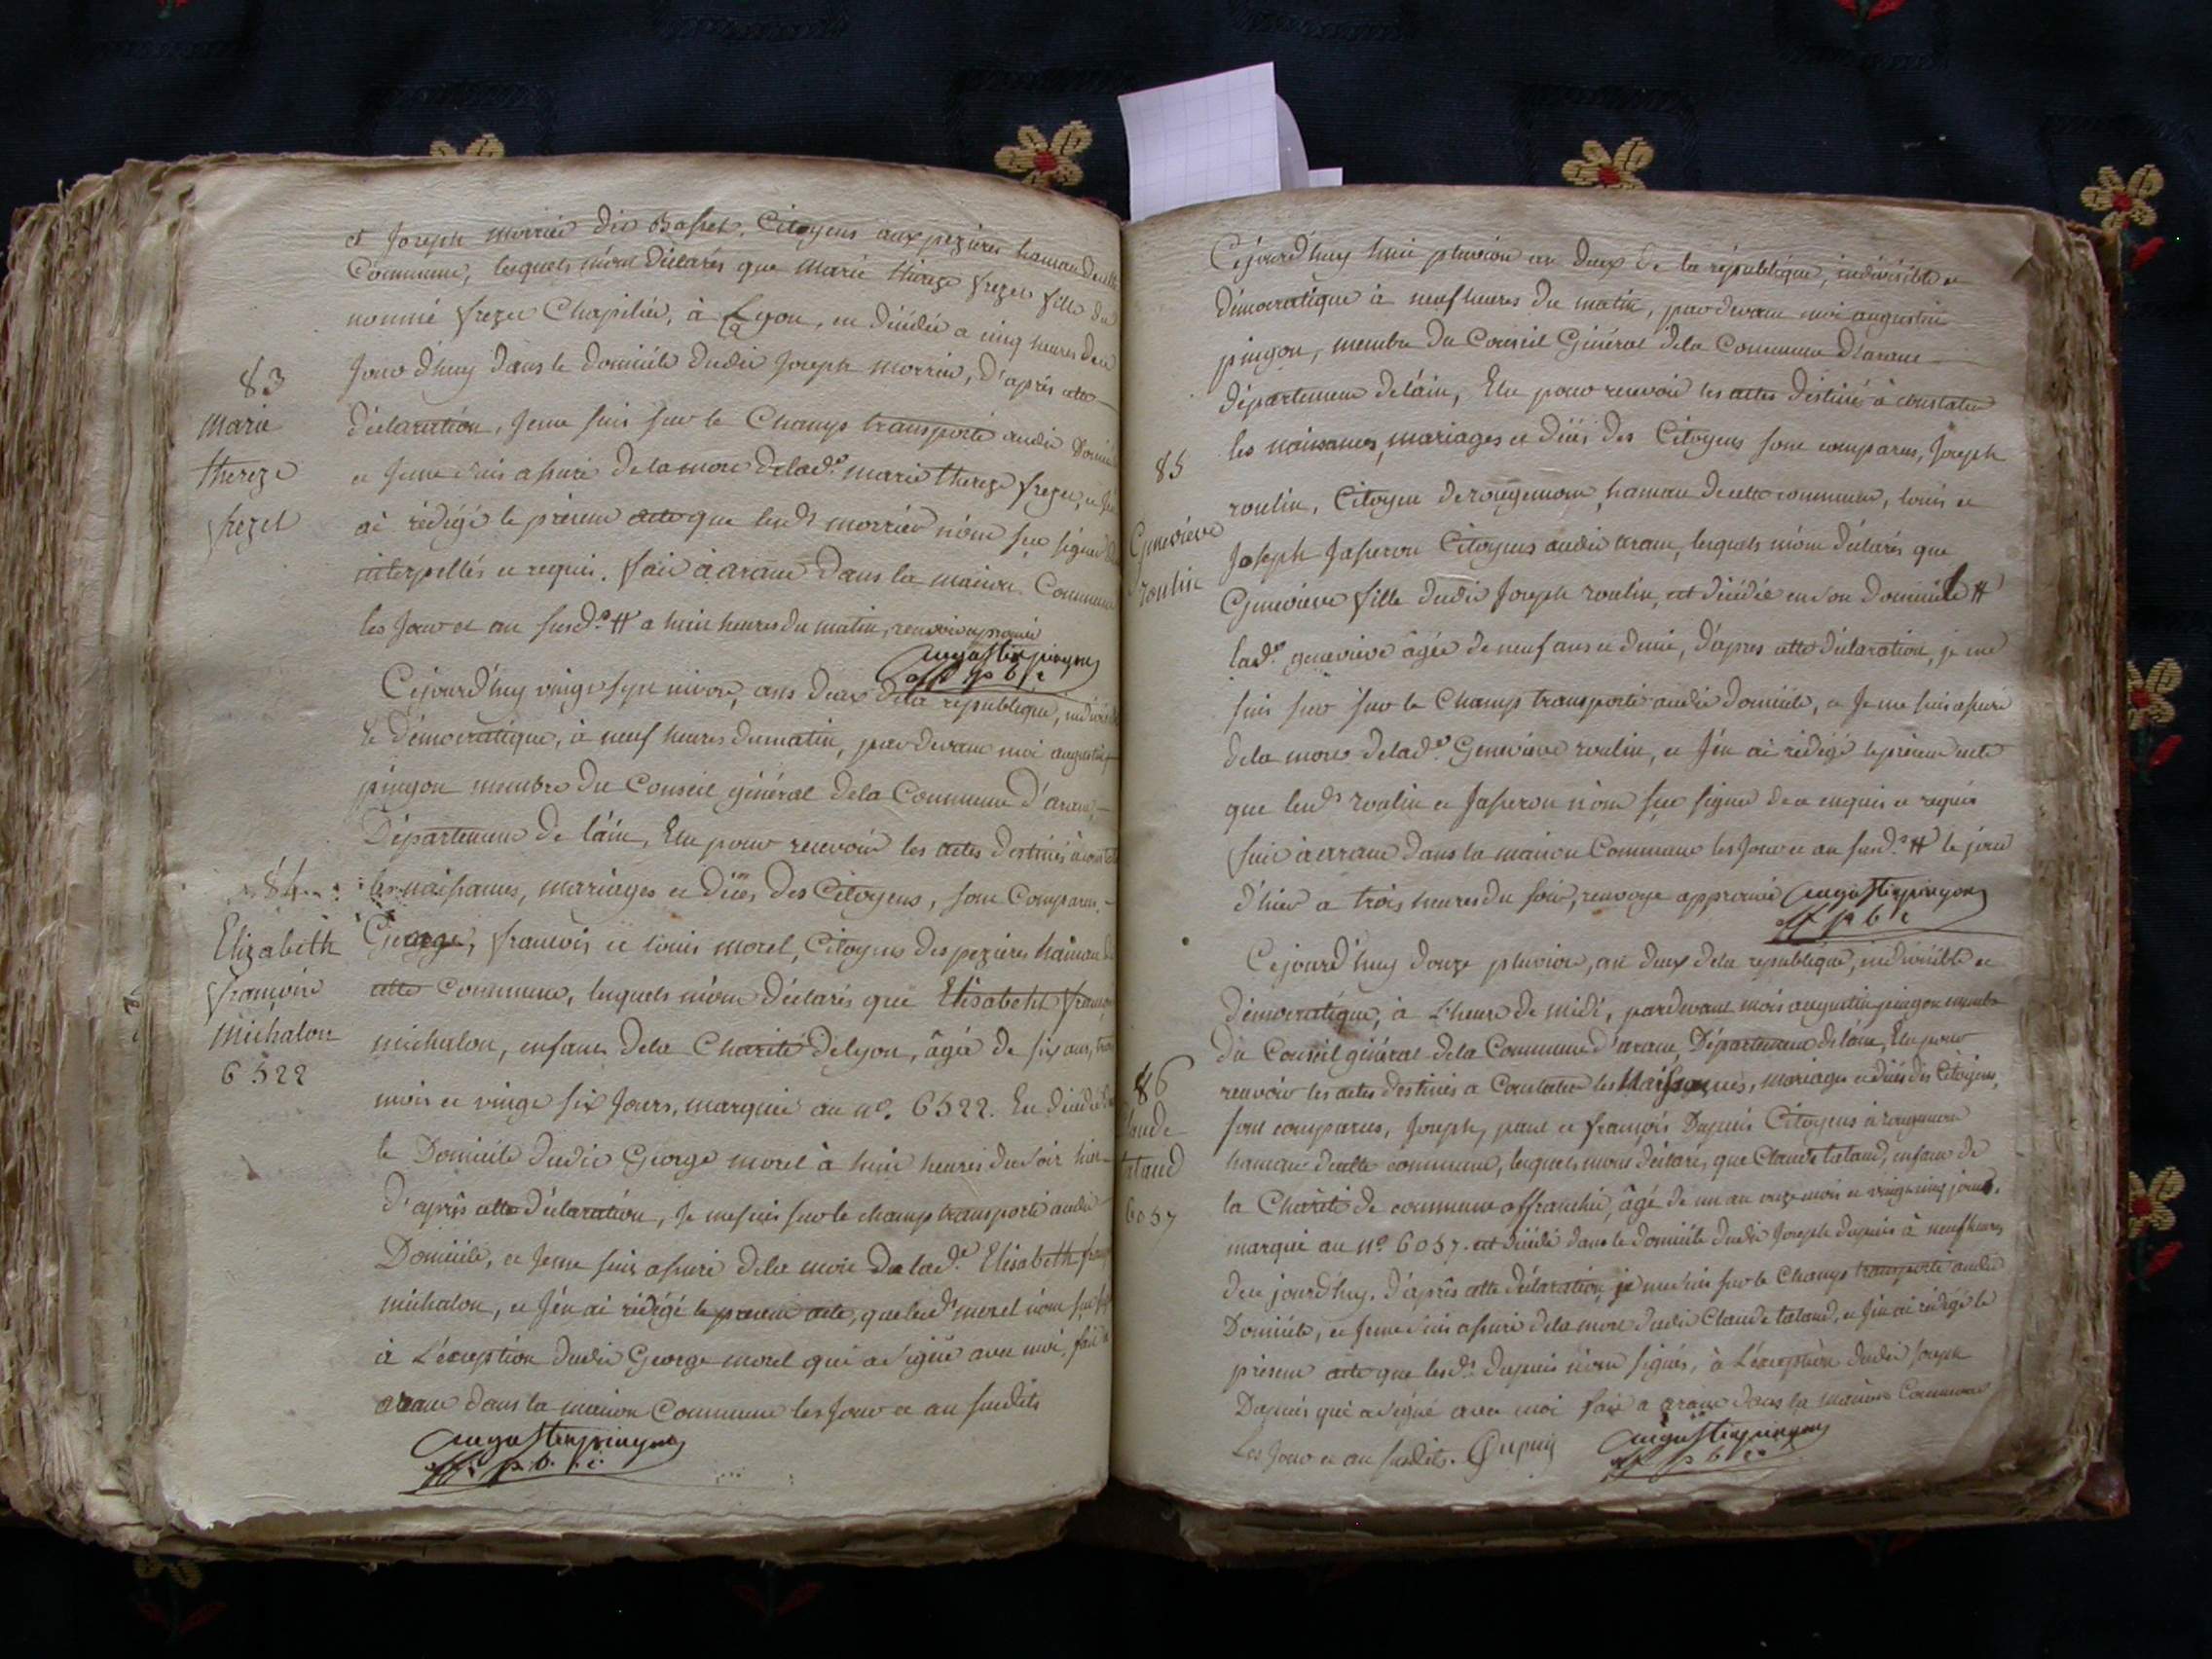 et Joseph morrier dit Basset, Citoyens aux pezieres hameau de cette
Commune, lesquels m'ont déclarés que Marie thereze frezet fille du
nommé frezet Chapelier, à Lyon, est décédée a cinq heures de ce
Jour d'huy dans le domicile dudit Joseph morrier, d'après cette
83
Marie
thereze
frezet
déclaration, Je me suis sur le Champs transporté audit Domicile
et Je me suis assuré de la mort de lade. marie thereze frezet, et J'en
ai rédigé le présent acte que lesds morrier n'ont seu signer de ce
interpellés et requis. fait à aranc Dans la maison Commune
les Jour et an susd.s # a huit heures du matin, renvoi approuvé
Augustin pingon
off p b c
Cejourd'huy vingt sept nivose, ans deux de la republique, indivisible
& démocratique, à neuf heures du matin, par devant moi augustin
pingon membre du Conseil général de la Commune d'aranc,
Département de l'ain, Elu pour recevoir les actes destinés à constater
84
Elizabeth
françoise
michalon
6522
les naissances, mariages et décès des Citoyens, sont Comparus,
George, françois et louis morel, Citoyens des pezieres hameau de
cette Commune, lesquels m'ont déclarés que Elisabeht françoise
michalon, enfant de la Charité de lyon, âgée de six ans, trois
mois et vingt six Jours, marquée au n°. 6522. Est décédée dans
le Domicile dudit George morel à huit heures du soir hier
d'après cette déclaration, Je me suis sur le champ transporté audit
Domicile, et Je me suis assuré de la mort de lade. Elisabeth françoise
michalon, et J'en ai rédigé le present acte, que lesd.s morel n'ont seu signer
à L'exception dudit George morel qui a signé avec moi, fait à
aranc dans la maison Commune les Jour et an susdits
Augustin pingon
off p. b. c.
Cejourd'huy huit pluviose an deux de la république, indivisible et
démocratique à neuf heures du matin, par devant moi augustin
pingon, membre du Conseil Général de la Commune d'aranc
département de l'ain, Elu pour recevoir les actes destiné à constater
les naissances, mariages et décès des Citoyens sont comparus, Joseph
85
Genevieve
roulin
roulin, Citoyen de rougemont, hameau de cette commune, louis et
Joseph Jasseron Citoyens audit aranc, lesquels m'ont déclarés que
Genevieve fille dudit Joseph roulin, est décédée en son domicile #
lade. genevieve âgée de neuf ans et demie, d'apres cette déclaration, je me
suis sur sur le Champs transporté audit domicile, et Je me suis assuré
de la mort de lade. Genevieve roulin, et J'en ai rédigé le présent acte
que lesds roulin et Jasseron n'ont seu signer de ce enquis et requis
fait à aranc dans la maison Commune les Jour et an susd.s # le jour
d'hier a trois heures du soir, renvoye approuvé Augustin pingon
off p b c
Cejourd'huy douze pluviose, an deux de la republique, indivisible et
démocratique, à L'heure de midi, pardevant mois augustin pingon membre
du Conseil général de la Commune d'aranc, Département de l'ain, Elu pour
86
Claude
lataud
6057
recevoir les actes destinés a Constater les Naissances, mariages et décès des Citoyens,
sont comparus, Joseph, paul et françois Dupuis Citoyens à rougemont
hameau de cette commune, lesquels m'ont déclarés, que Claude lataud, enfant de
la Charité de commune affranchie, âgé de un an onze mois et vingt cinq jours,
marqué au n° 6057. est décédé dans le domicile dudit Joseph dupuis à neuf heures
de ce jourd'huy. d'après cette déclaration, je me suis sur le Champs transporté audit
Domicile, et Je me suis assuré de la mort dudit Claude lataud, et J'en ai rédigé le
présent acte que lesd.s dupuis n'ont signés, à L'exception dudit Joseph
Dupuis qui a signé avec moi fait a aranc dans la maison Commune
Les Jour et an susdits. Dupuis Augustin pingon
off p b c